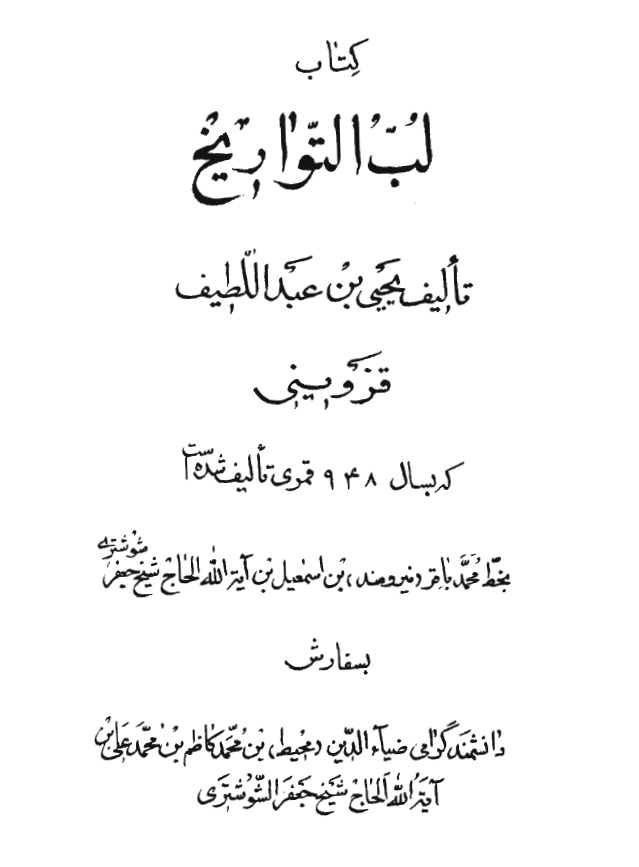 كِتاب
لُبُّ التَّواريخ
تأليف يحيى بن عبد اللّطيف
قزويني
كه بسال ۹۴۸ قمرى تأليف شده است
بخطّ محمّد باقر (نيرومند) بن اسمعيل بن آية اللّه الحاجّ شيخ جعفر شوشترى
بسفارش
دانشمند گرامى ضياء الدّين (محيط) بن محمّد كاظم بن محمّد على بن
آية اللّه الحاجّ شيخ جعفر الشّوشترى